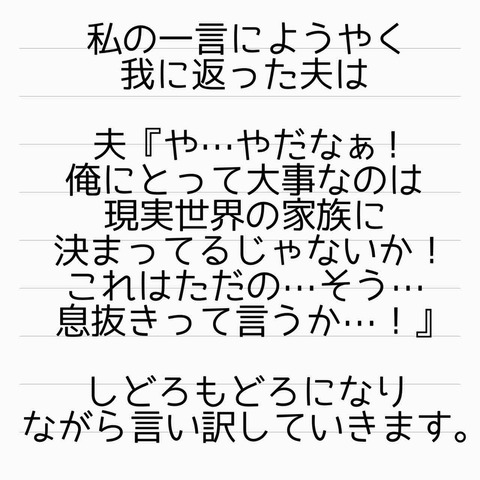 私の一言にようやく
我に返った夫は
夫『や…やだなぁ！
俺にとって大事なのは
現実世界の家族に
決まってるじゃないか！
これはただの…そう…
息抜きって言うか…！』
しどろもどろになり
ながら言い訳していきます。